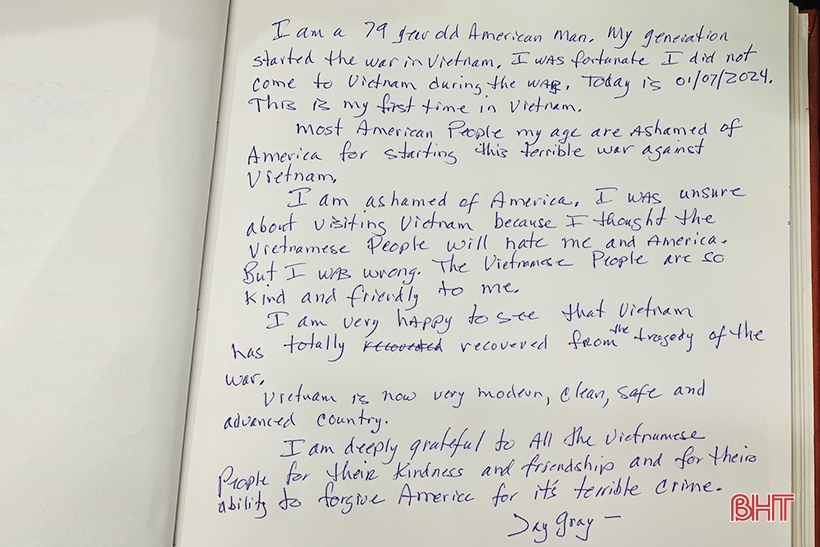 I am a 79 year old American man. My generation
started the war in Vietnam. I was fortunate I did not
come to Vietnam during the war. Today is 01/07/2024.
This is my first time in Vietnam.
Most American People my age are Ashamed of
America for starting this terrible war against
Vietnam.
I am ashamed of America. I was unsure
about visiting Vietnam because I thought the
Vietnamese People will hate me and America.
But I was wrong. The Vietnamese People are so
kind and friendly to me.
I am very happy to see that Vietnam
has totally recovered recovered from the tragedy of the
war.
Vietnam is now very modern, clean, safe and
advanced country.
I am deeply grateful to All the Vietnamese
People for their kindness and friendship and for their
ability to forgive America for it's terrible crime.
Jay Gray –
BHT